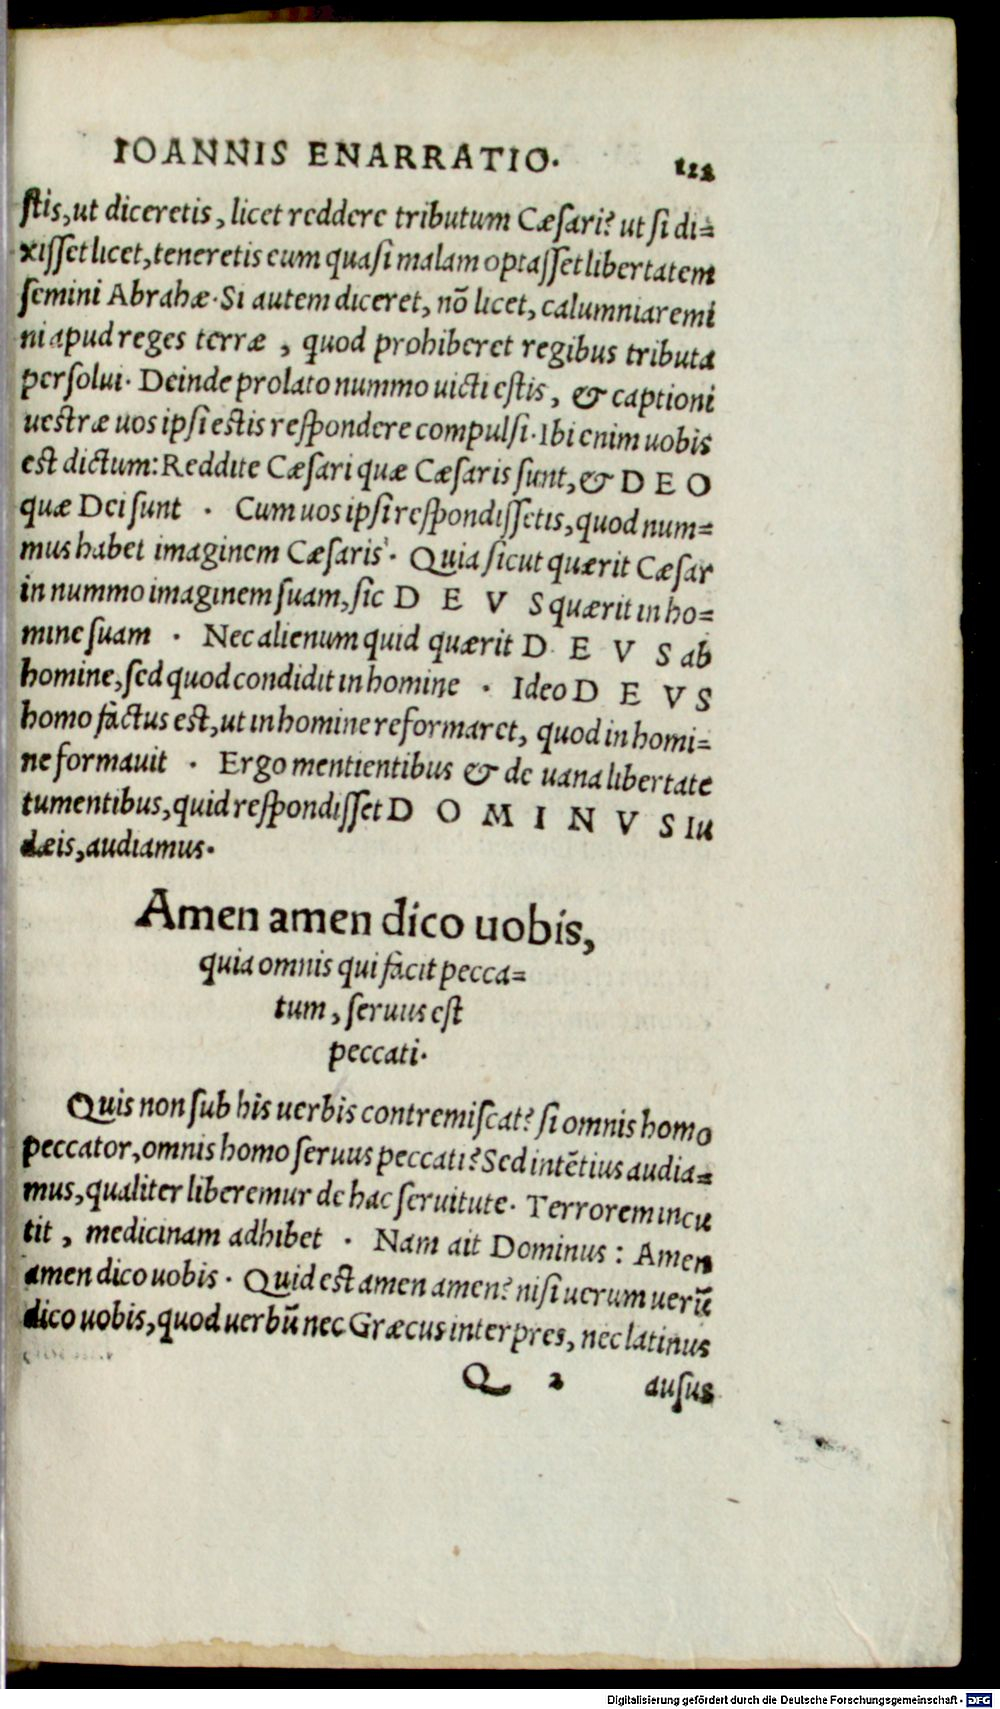 IOANNIS ENARRATIO. 122
stis, ut diceretis, licet reddere tributum Cæsari? ut si di=
xisset licet, teneretis eum quasi malam optasset libertatem
semini Abrahæ. Si autem diceret, nō licet, calumniaremi
ni apud reges terræ , quod prohiberet regibus tributa
persolui. Deinde prolato nummo uicti estis, & captioni
uestræ uos ipsi estis respondere compulsi. Ibi enim uobis
est dictum: Reddite Cæsari quæ Cæsaris sunt, & D E O
quæ Dei sunt . Cum uos ipsi respondissetis, quod num=
mus habet imaginem Cæsaris . Quia sicut quærit Cæsar
in nummo imaginem suam, sic D E V S quærit in ho=
mine suam . Nec alienum quid quærit D E V S ab
homine, sed quod condidit in homine . Ideo D E V S
homo factus est, ut in homine reformaret, quod in homi=
ne formauit . Ergo mentientibus & de uana libertate
tumentibus, quid respondisset D O M I N V S Iu
dæis, audiamus.
Amen amen dico uobis,
quia omnis qui facit pecca=
tum, seruus est
peccati.
Quis non sub his uerbis contremiscat? si omnis homo
peccator, omnis homo seruus peccati? Sed intētius audia=
mus, qualiter liberemur de hac seruitute. Terrorem incu
tit, medicinam adhibet . Nam ait Dominus : Amen
amen dico uobis . Quid est amen amen? nisi uerum uerū
dico uobis, quod uerbū nec Græcus interpres, nec latinus
Q 2 ausus
Digitalisierung gefördert durch die Deutsche Forschungsgemeinschaft - DFG